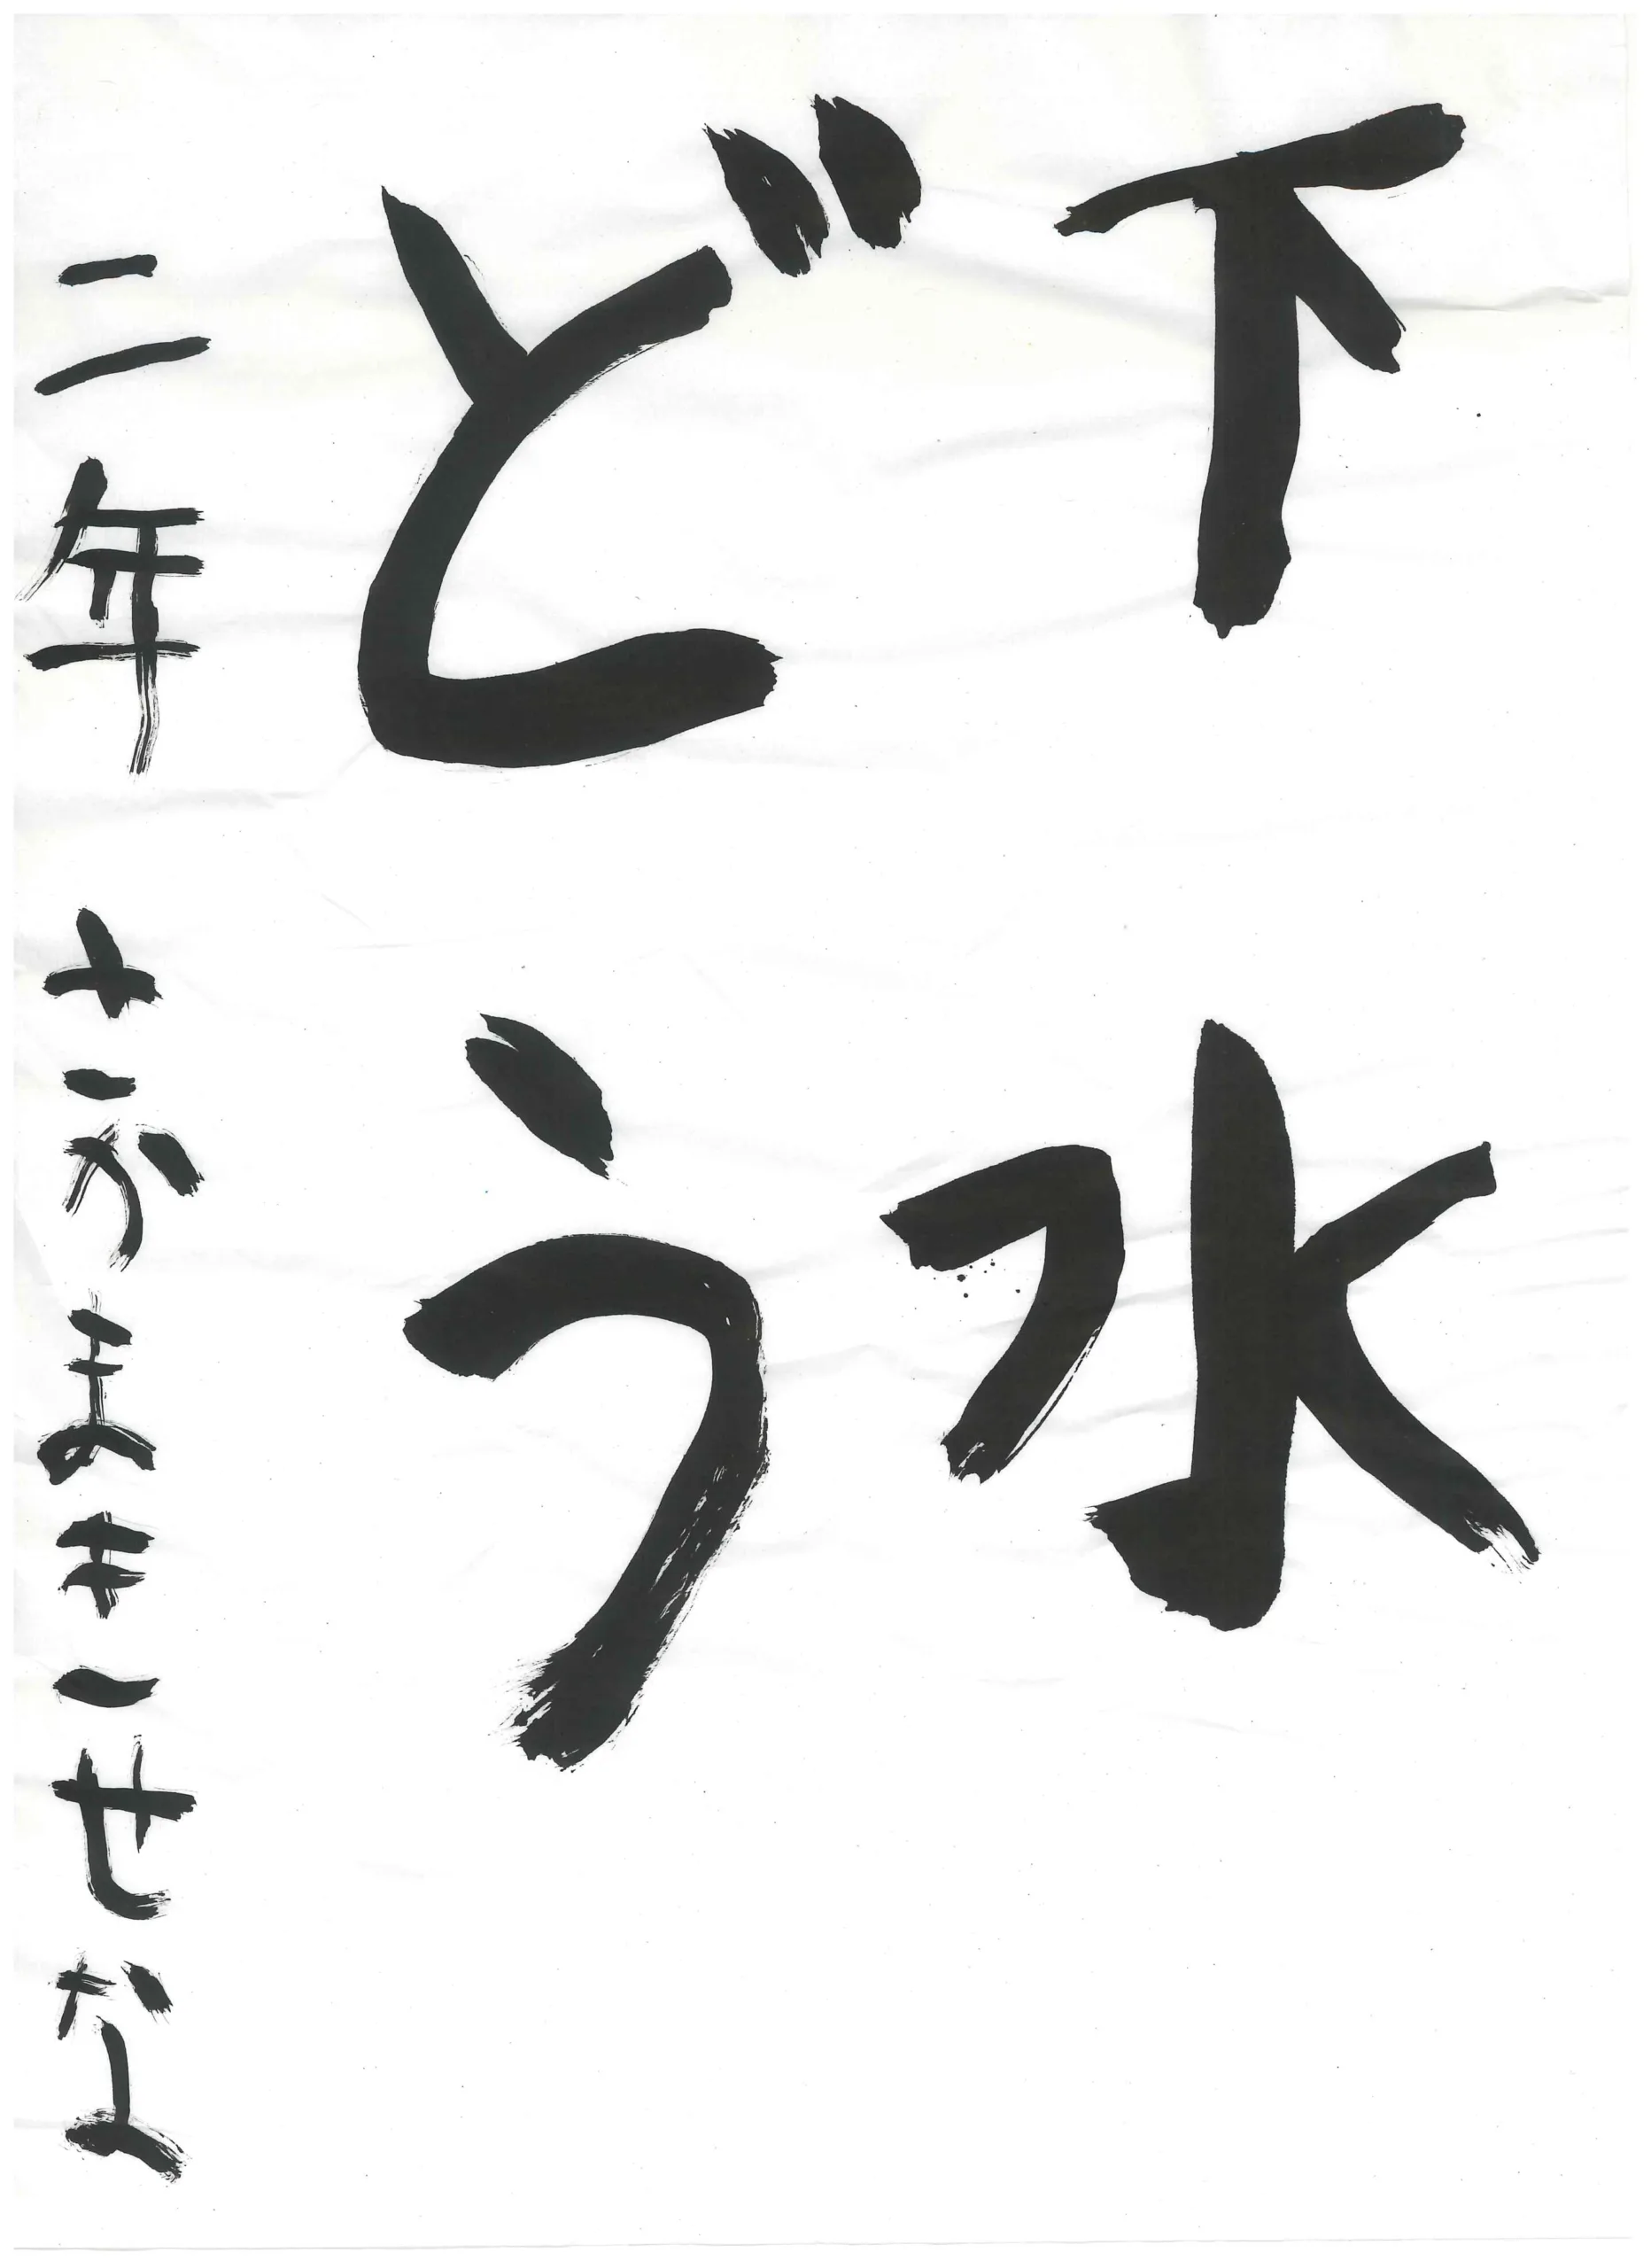 下水
どう
二年 さかまきせな